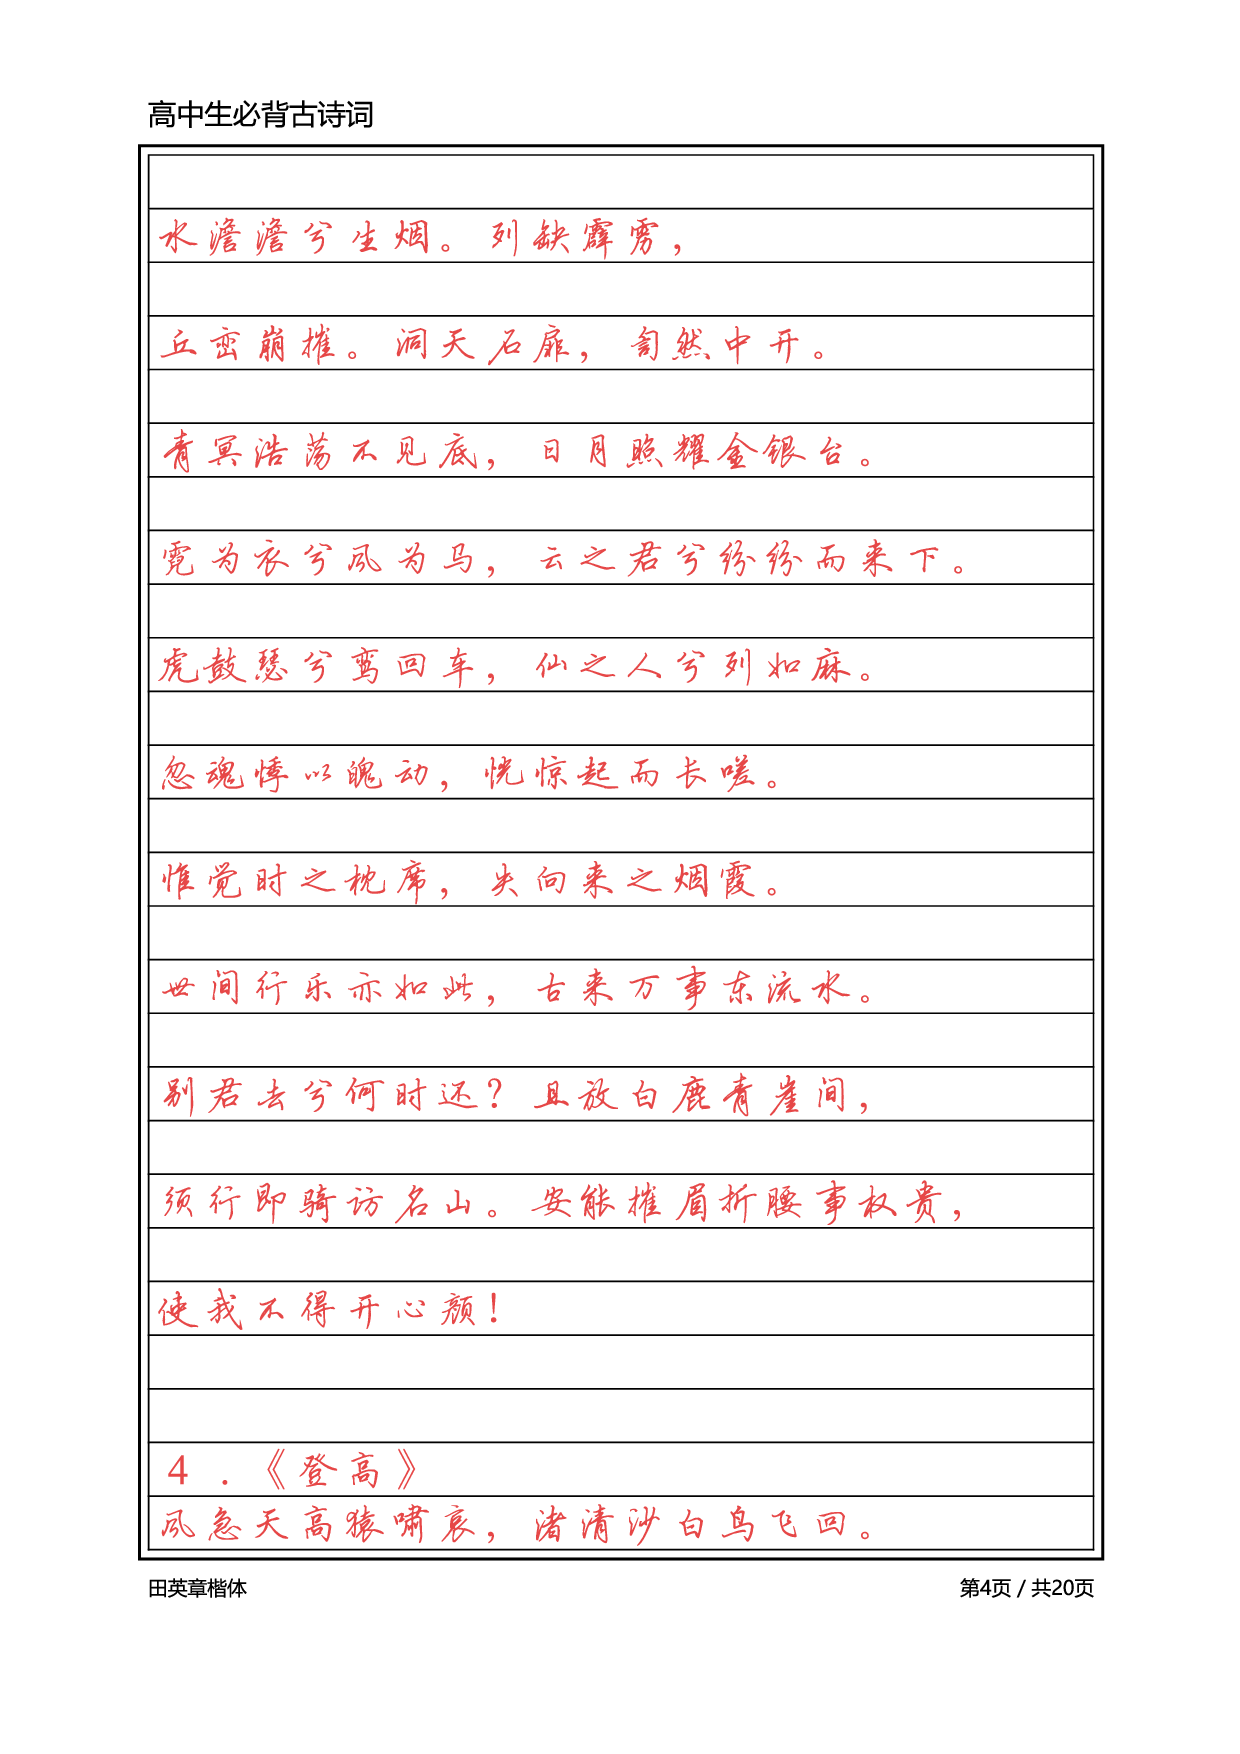 高中生必背古诗词
水澹澹兮生烟。列缺霹雳，
丘峦崩摧。洞天石扉，訇然中开。
青冥浩荡不见底，日月照耀金银台。
霓为衣兮风为马，云之君兮纷纷而来下。
虎鼓瑟兮鸾回车，仙之人兮列如麻。
忽魂悸以魄动，恍惊起而长嗟。
惟觉时之枕席，失向来之烟霞。
世间行乐亦如此，古来万事东流水。
别君去兮何时还？且放白鹿青崖间，
须行即骑访名山。安能摧眉折腰事权贵，
使我不得开心颜！
4．《登高》
风急天高猿啸哀，渚清沙白鸟飞回。
田英章楷体
第4页 / 共20页